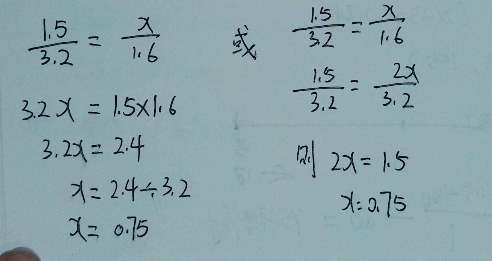 1.5/3.2 = x/1.6
3.2x = 1.5×1.6
3.2x = 2.4
x = 2.4÷3.2
x = 0.75
或
1.5/3.2 = x/1.6
1.5/3.2 = 2x/3.2
则 2x = 1.5
x = 0.75